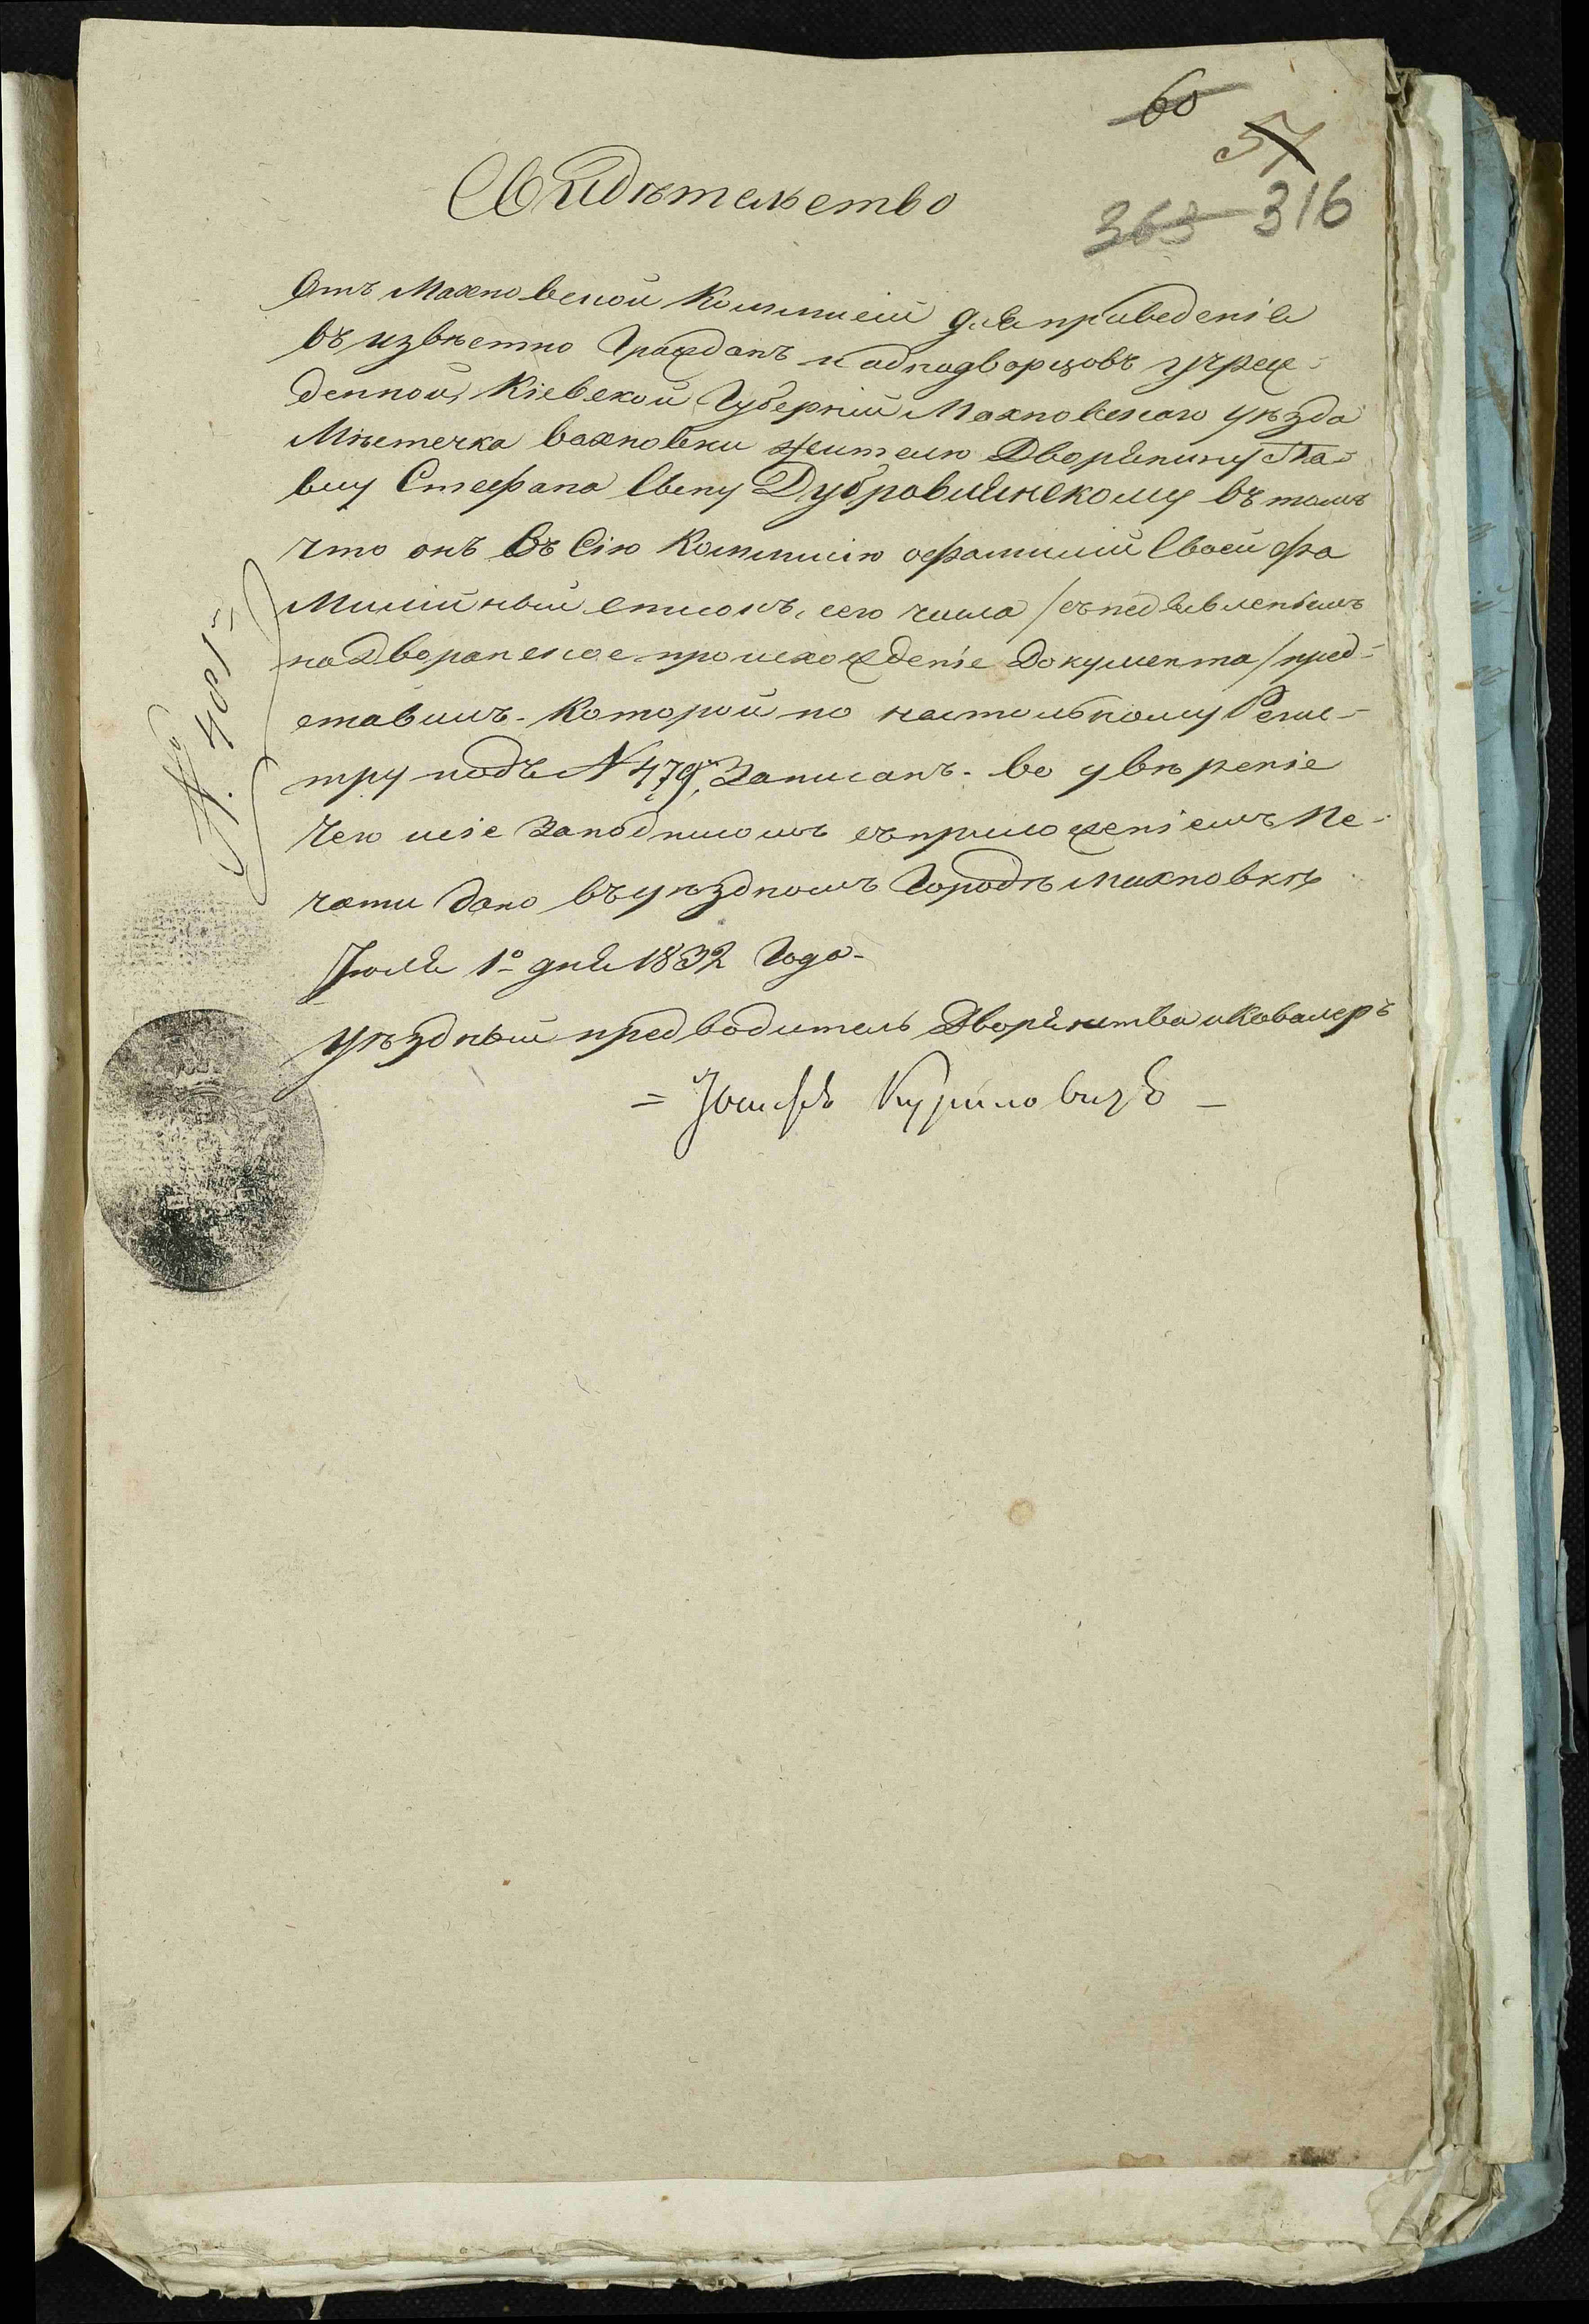 60
57
363 316
Свидѣтельство
Отъ Махновской Коммисіи для приведенія
въ извѣстно Граждан и однодворцовъ учреж-
денной, Кіевской Губерніи Махновскаго уѣзда
Мѣстечка вахновки жителю Дворянину Па-
влу Стефана Сыну Дубровинскому въ томъ
что онъ Въ Сію Коммисію офамиліи Своей фа
Милійный списокъ, сего числа /съ
надворанское происхожденіе Документа/ пред-
ставилъ. Которой по настольному Реис-
тру подъ N 479м. Записанъ. во увѣреніе
Чего сіе Заподписомъ съприложеніемъ Пе-
чати дано въуѣздномъ Городѣ Махновкѣ
Іюля 1о дня 1832 Года.
уѣздный предводитель Дворянства иКовалеръ
= Іосифъ Куриловичъ -